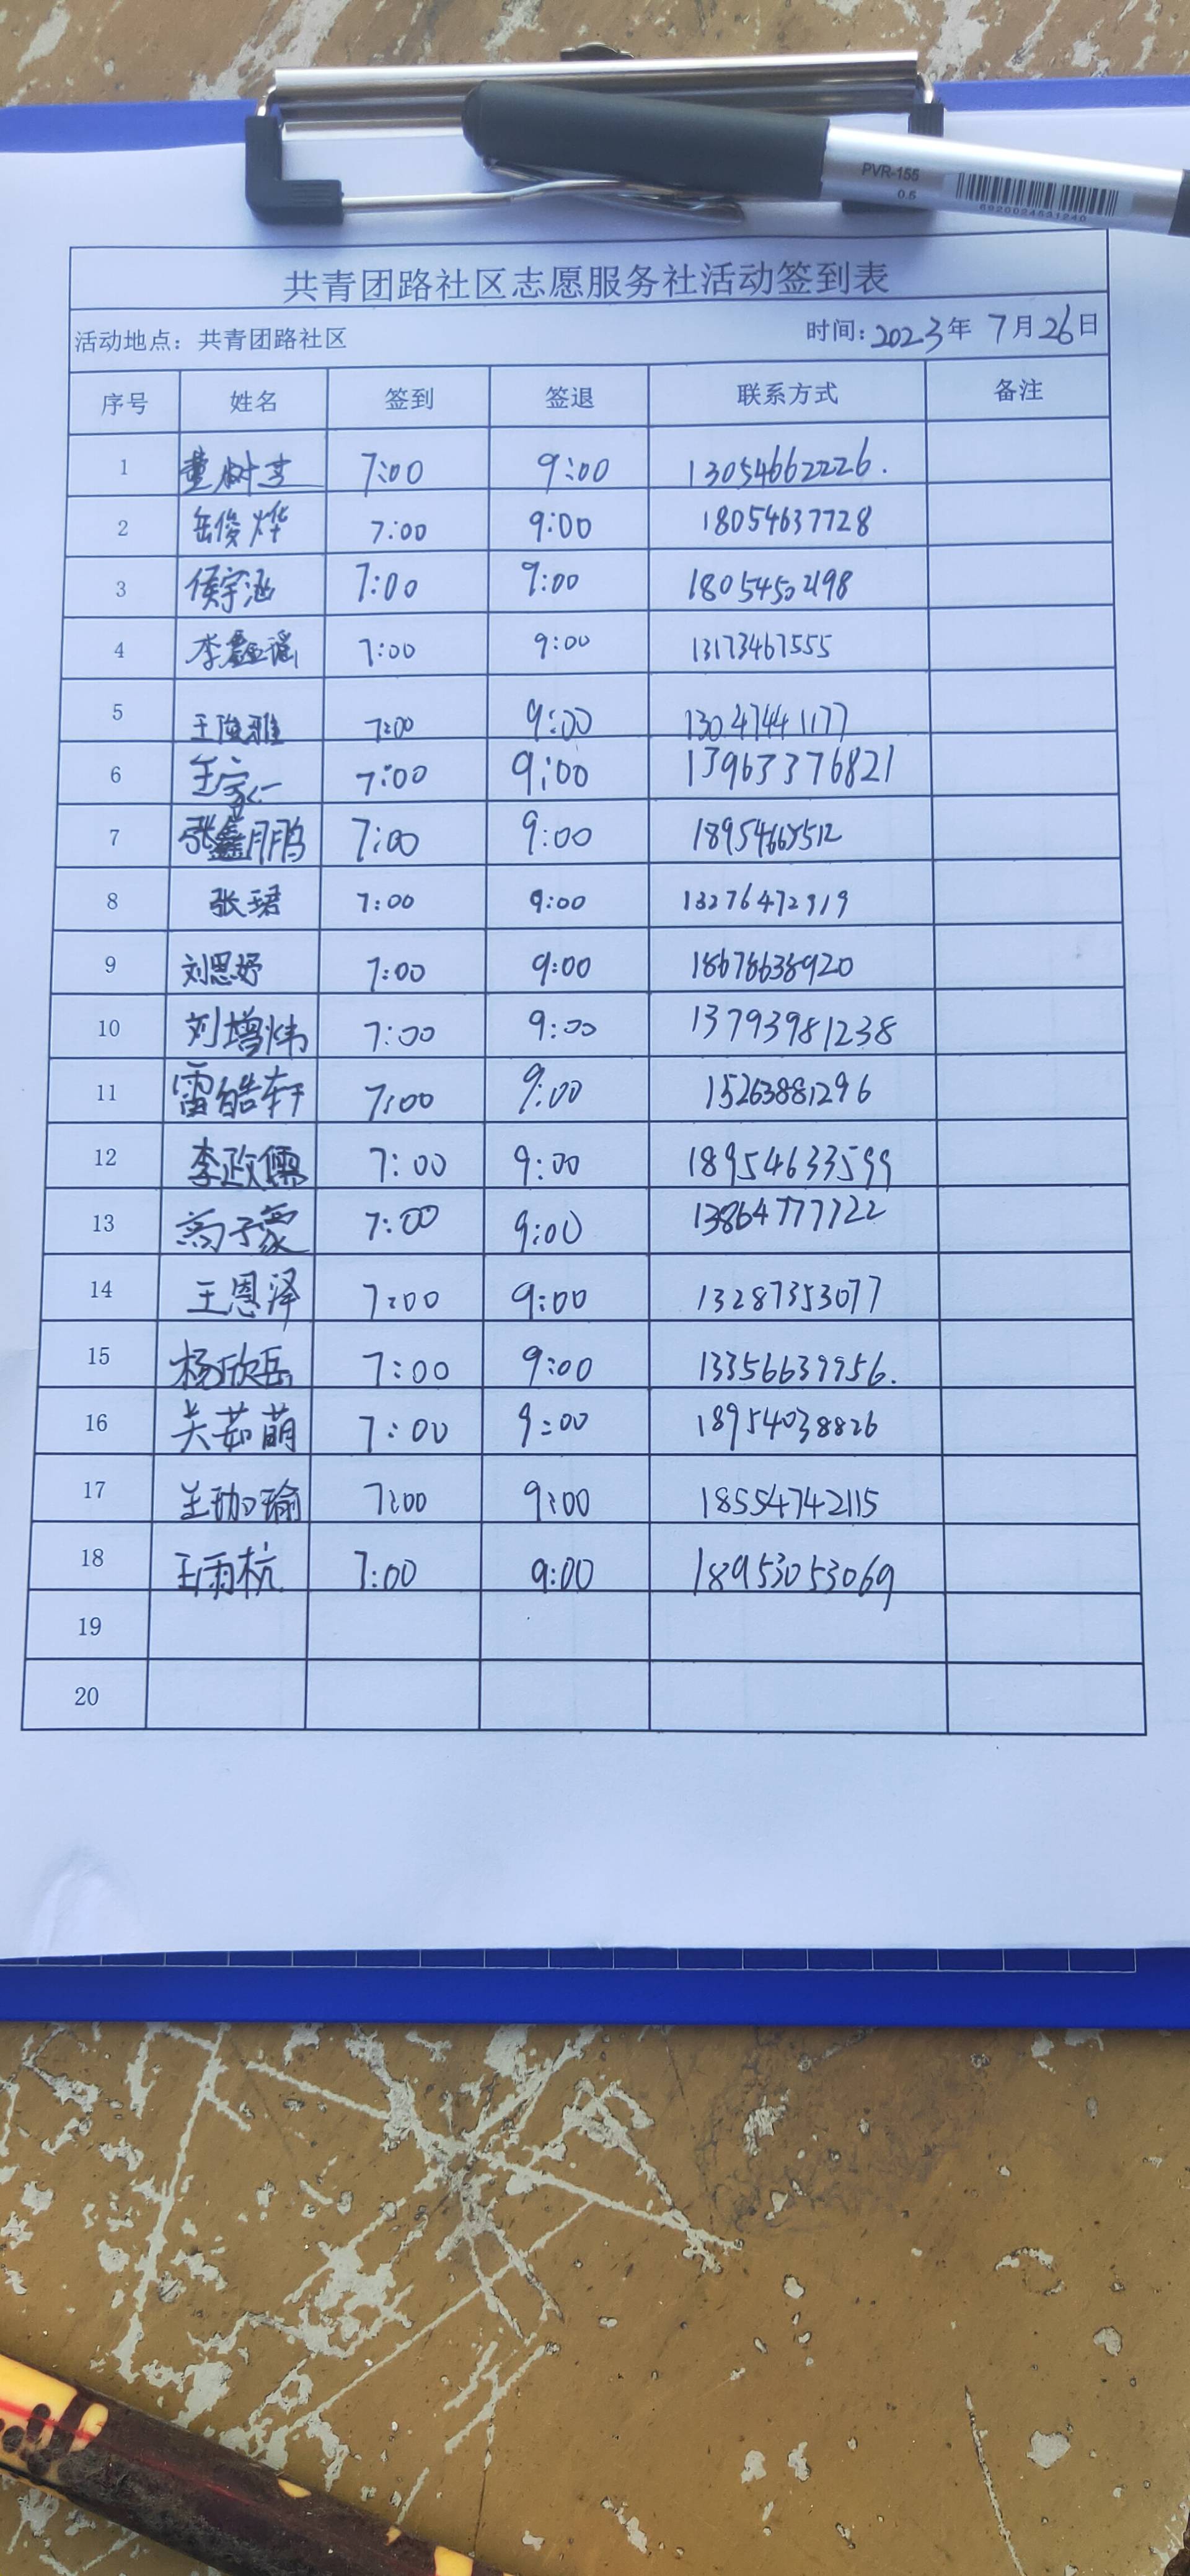 PVR-155
0.5
6920024531240
共青团路社区志愿服务社活动签到表
活动地点：共青团路社区 时间：2023年 7月26日
序号 姓名 签到 签退 联系方式 备注
1 董树 7:00 9:00 13054662226.
2 岳俊烨 7:00 9:00 18054637728
3 侯宇涵 7:00 9:00 18054502198
4 李鑫谣 7:00 9:00 13173467555
5 王陵雅 7:00 9:00 13047441177
6 王家仁 7:00 9:00 13963376821
7 张鑫鹏 7:00 9:00
8 张珺 7:00 9:00 13276472919
9 刘恩妤 7:00 9:00 18678638920
10 刘增炜 7:00 9:00 13793981238
11 雷皓轩 7:00 9:00 15263881296
12 李政儒 7:00 9:00 18954633599
13 高子豪 7:00 9:00 13864777722
14 王恩泽 7:00 9:00 13287353077
15 杨欣岳 7:00 9:00 13356639956.
16 关茹萌 7:00 9:00 18954038826
17 王珈瑜 7:00 9:00 18554742115
18 王雨杭 7:00 9:00 18953053069
19
20